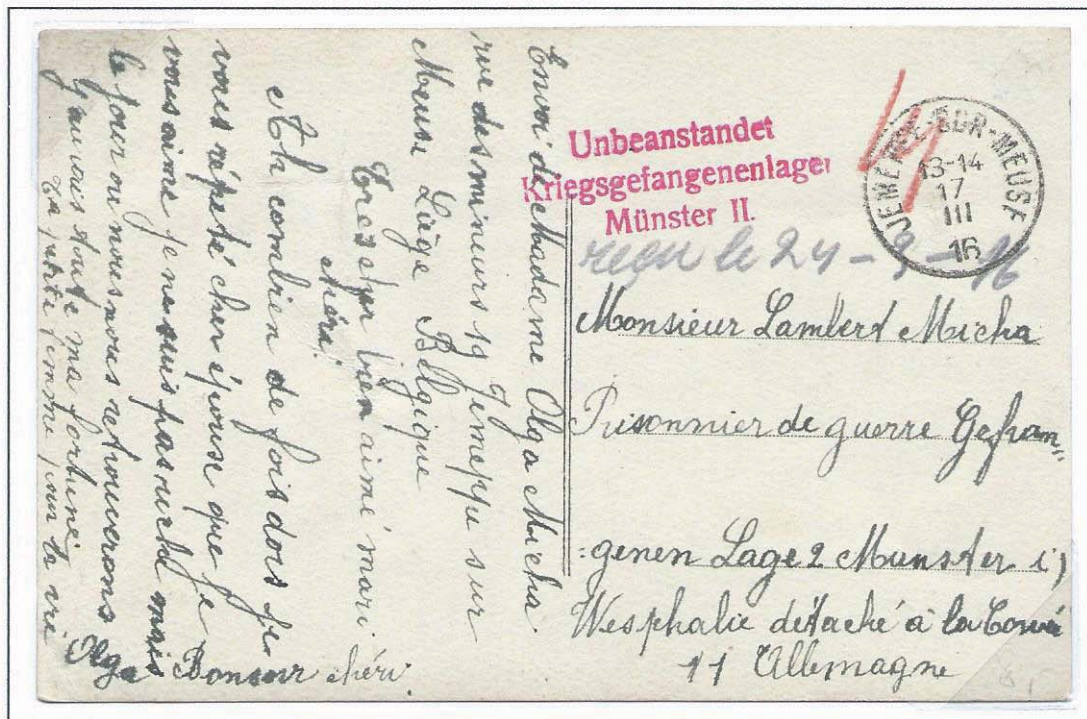 Envoi de Madame Olga Micha
rue des mineurs 19 Jemeppe sur
Meuse Liège Belgique
Tres et bien aimé mari
chéri.
Eh combien de fois dois je
vous répété cher épouse que je
vous aime je ne suis pas riche mais
le jour ou nous nous retrouverons
j'aurais toute ma fortune
ta petite femme pour la vie
Olga Bonsoir chéri
Unbeanstandet
Kriegsgefangenenlager
Münster II.
JEMEPPE-SUR-MEUSE
13-14
17
III
16
reçu le 24-3-16
Monsieur Lambert Micha
Prisonnier de guerre Gefran„
:genen Lage 2 Munster i)
Westphalie détaché à la
11 Allemagne